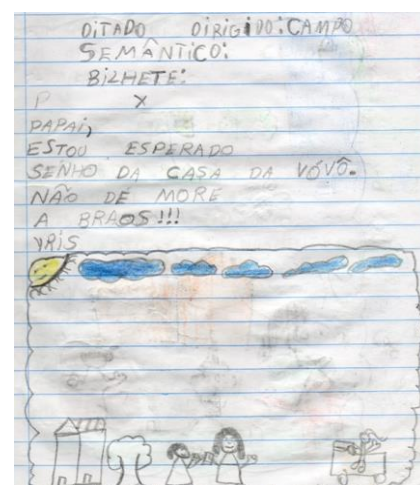 DITADO DIRIGIDO: CAMPO
SEMÂNTICO:
BILHETE:
P X
PAPAI,
ESTOU ESPERADO
SENHO DA CASA DA VÓVÔ.
NÃO DÉ MORE
A BRAOS!!!
YRIS